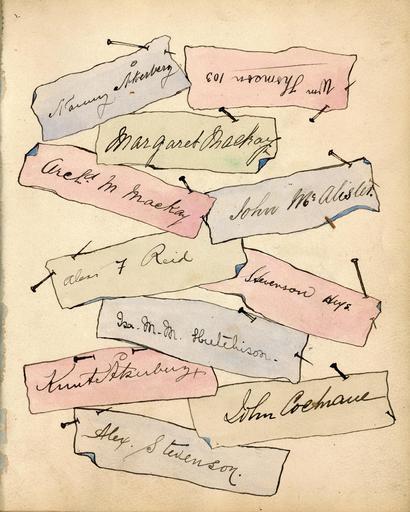 Nanny Åkerberg
Wm Thomson 103
Margaret Mackay
Archd. M Mackay
John McAlister.
Alex F Reid
Stevenson Hys
Isa. M. M. Hutchison.
Knut Åkerberg
John Cochrane
Alex. Stevenson.